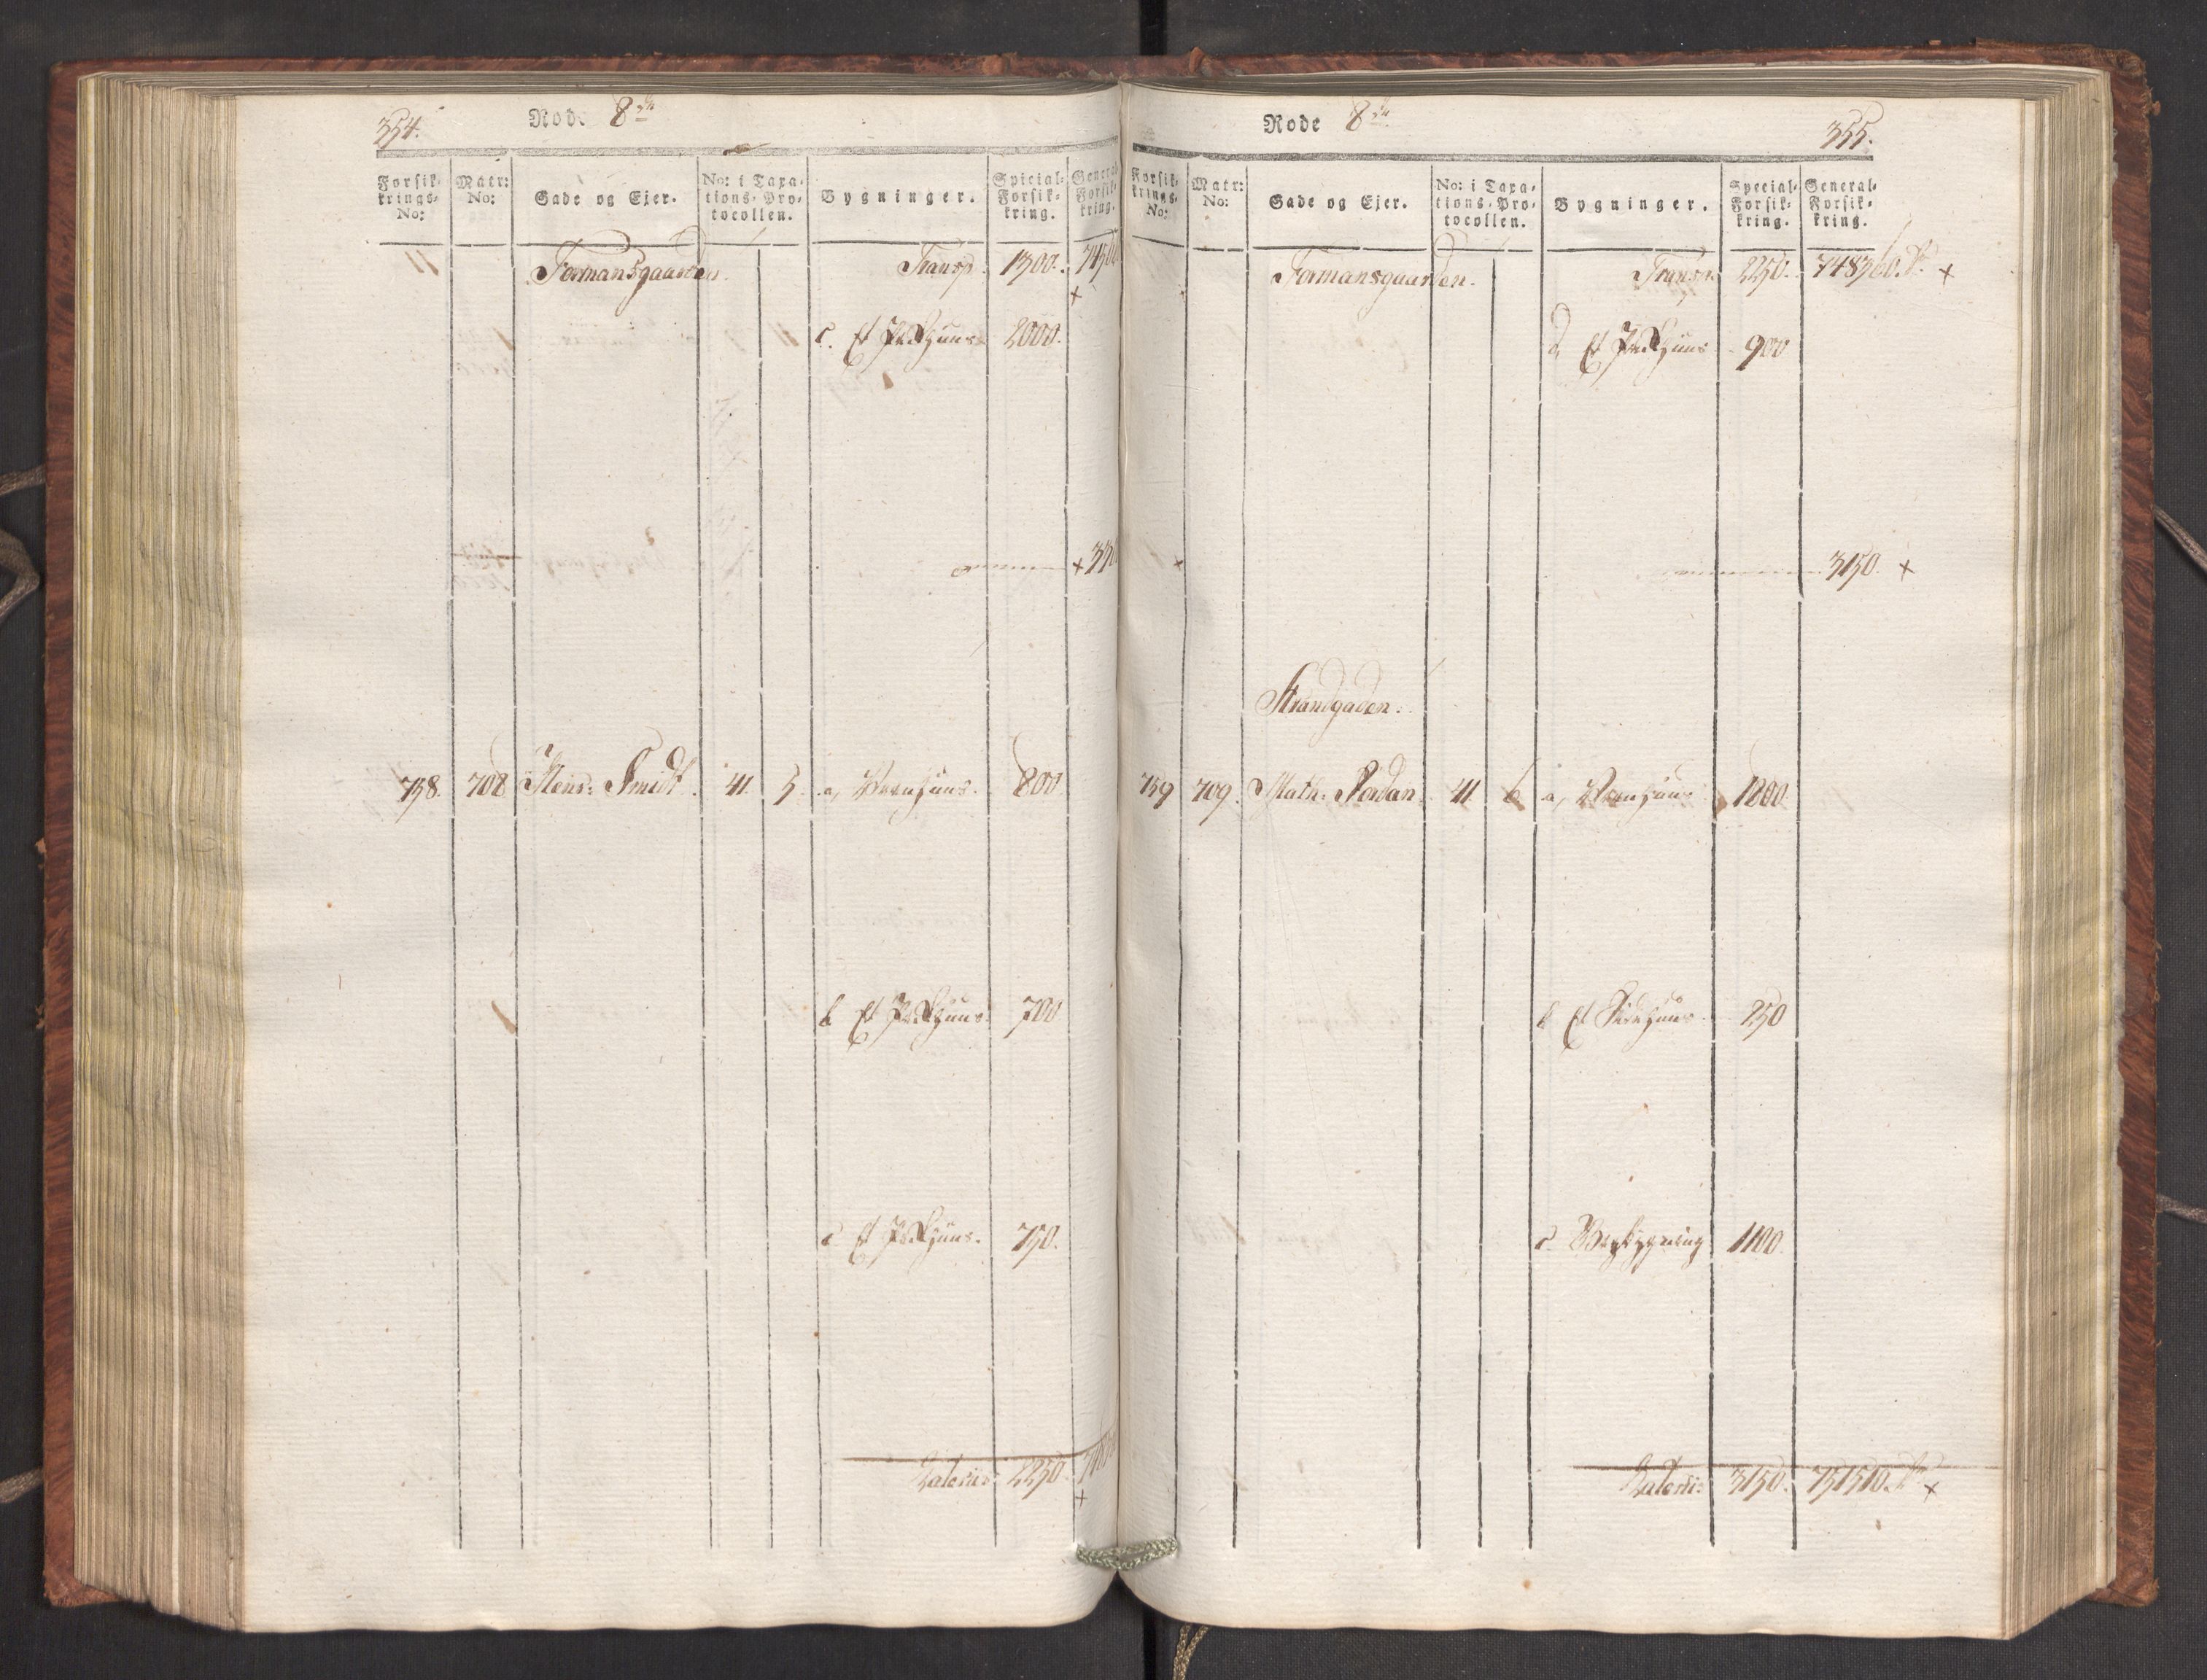 354.
Rode 8de
Forsik-
krings-
No:
Matr:
No:
Gade og Ejer.
No: i Taxa-
tions-Pro-
tocollen.
Bygninger.
Special-
Forsik-
kring.
General-
Forsik-
kring.
Formansgaarden. Transp. 1300.
c. Et Pakhuus 2000.
758. 708 Stens: Smidt. 41. 5. a, Vaanhuus. 800
b Et Pakhuus. 700
c. Et Pakhuus. 750.
Lateris: 2250
Rode 8de
355.
Forsik-
krings-
No:
Matr:
No:
Gade og Ejer.
No: i Taxa-
tions-Pro-
tocollen.
Bygninger.
Special-
Forsik-
kring.
General-
Forsik-
kring.
Formansgaarden. Transp. 2250. 748360. +
d, Et Pakhuus 900
3150. +
Strandgaden.
759 709. Math: Jordan. 41. 6 a, Vaanhuus 1800
b Et Sidehuus 250
c. Bagbygning 1100.
Lateris: 3150. 751510. +